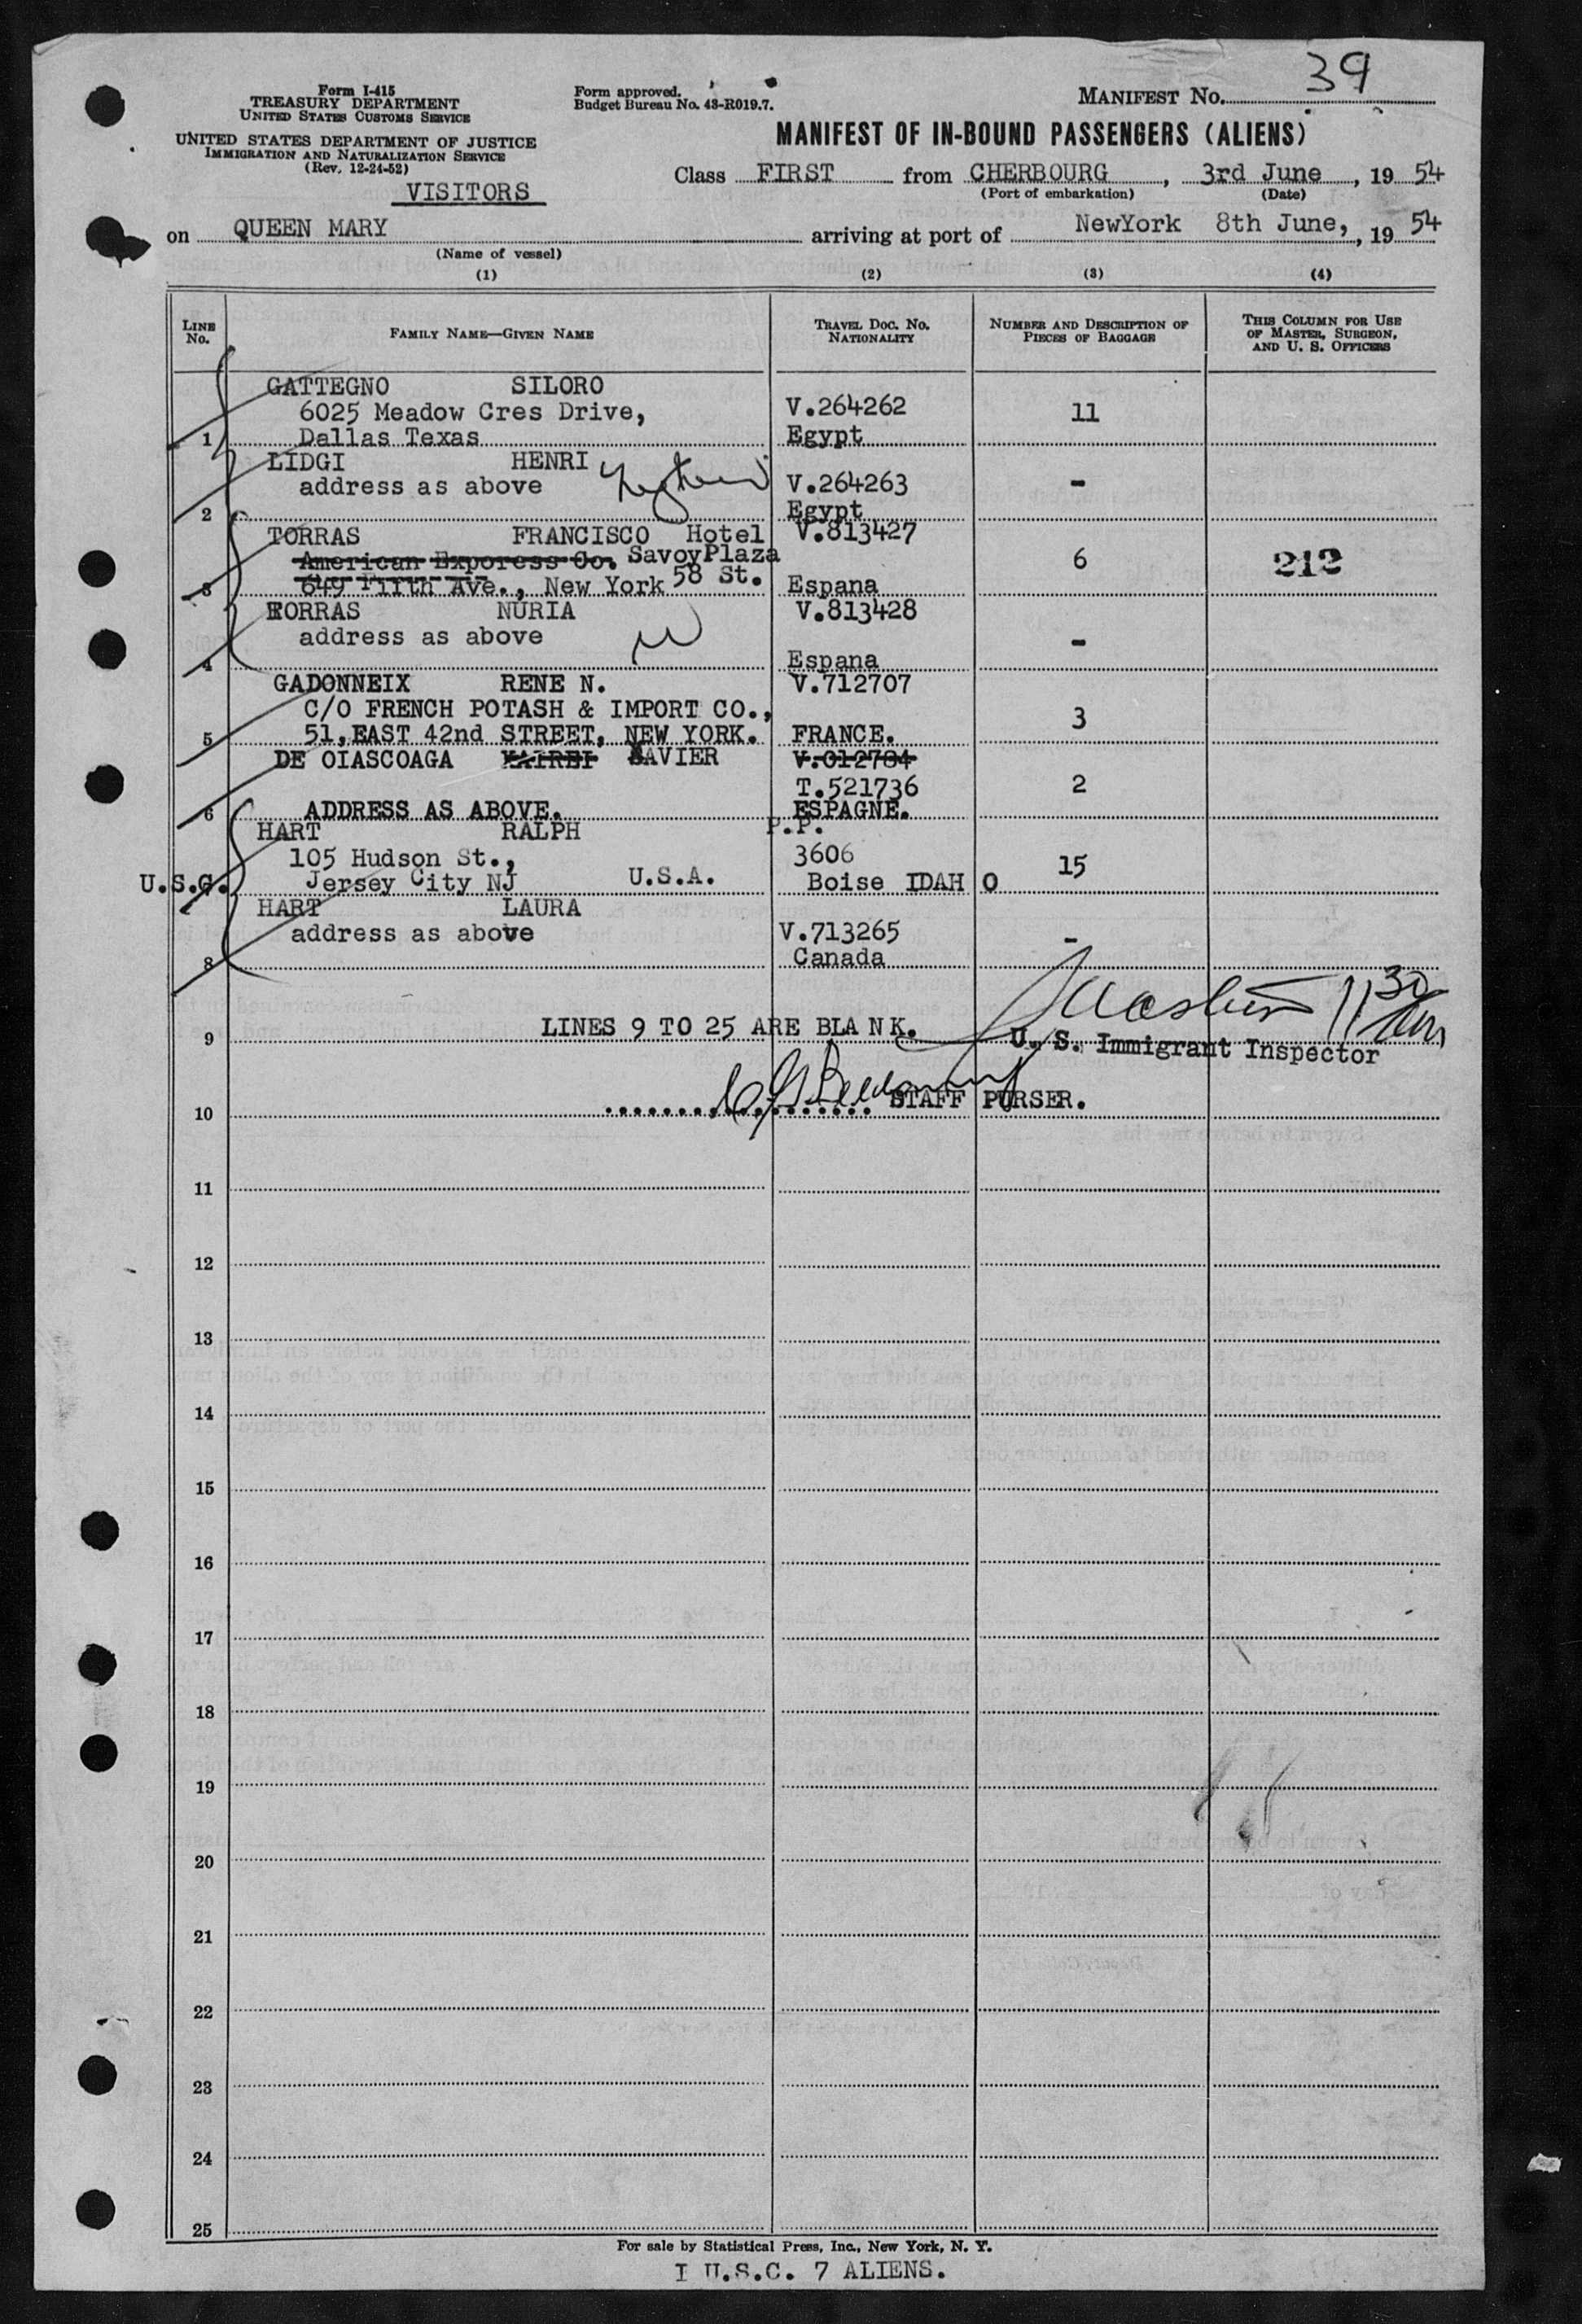 39
Form I-415
TREASURY DEPARTMENT
UNITED STATES CUSTOMS SERVICE
UNITED STATES DEPARTMENT OF JUSTICE
IMMIGRATION AND NATURALIZATION SERVICE
(Rev. 12-24-52)
VISITORS
Form approved.
Budget Bureau No. 43-R019.7.
MANIFEST NO.
MANIFEST OF IN-BOUND PASSENGERS (ALIENS)
Class FIRST from CHERBOURG, 3rd June, 19 54
(Port of embarkation) (Date)
on QUEEN MARY arriving at port of NewYork 8th June, 19 54
(Name of vessel)
(1) (2) (3) (4)
LINE NO. FAMILY NAME—GIVEN NAME TRAVEL DOC. NO. NATIONALITY NUMBER AND DESCRIPTION OF PIECES OF BAGGAGE THIS COLUMN FOR USE OF MASTER, SURGEON, AND U. S. OFFICERS
GATTEGNO SILORO
6025 Meadow Cres Drive, V.264262 11
1 Dallas Texas Egypt
LIDGI HENRI
address as above V.264263 -
2 Egypt
TORRAS FRANCISCO Hotel V.813427
American Exporess Co. SavoyPlaza 6 212
3 649 Fifth Ave., New York 58 St. Espana
TORRAS NURIA V.813428
address as above -
4 Espana
GADONNEIX RENE N. V.712707
C/O FRENCH POTASH & IMPORT CO., 3
5 51,EAST 42nd STREET, NEW YORK. FRANCE.
DE OIASCOAGA XAVIER
T.521736 2
6 ADDRESS AS ABOVE. ESPAGNE.
HART RALPH P.P.
105 Hudson St., 3606 15
U.S.C. Jersey City NJ U.S.A. Boise IDAH O
HART LAURA
address as above V.713265 -
8 Canada
11 30 am
9 LINES 9 TO 25 ARE BLA N K. U. S. Immigrant Inspector
10 .................. STAFF PURSER.
11
12
13
14
15
16
17
18
19
20
21
22
23
24
25
For sale by Statistical Press, Inc., New York, N. Y.
I U.S.C. 7 ALIENS.